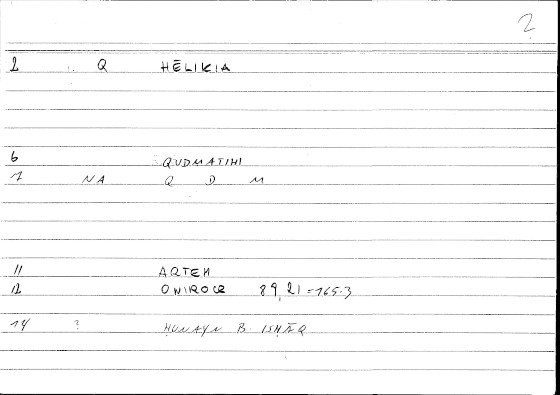 2
1 . Q HĒLIKIA
6 QUDMATIHI
1 NA Q D M
11 ARTEM
12 ONIROCR 89,21 = 165.3
14 ? ḤUNAYN B. ISḤĀQ